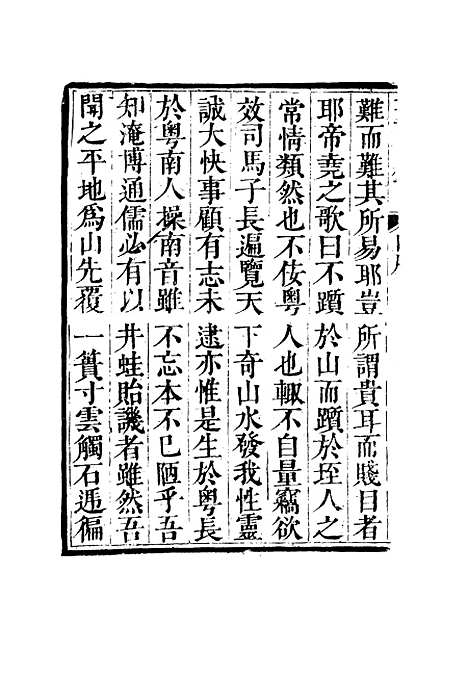 難而難其所易耶豈所謂貴耳而賤目者
耶帝堯之歌曰不躓於山而躓於垤人之
常情類然也不佞粵人也輙不自量竊欲
效司馬子長遍覽天下奇山水發我性靈
誠大快事顧有志未逮亦惟是生於粵長
於粵南人操南音雖不忘本不已陋乎吾
知淹博通儒必有以井蛙貽譏者雖然吾
聞之平地爲山先覆一簣寸雲觸石遍徧